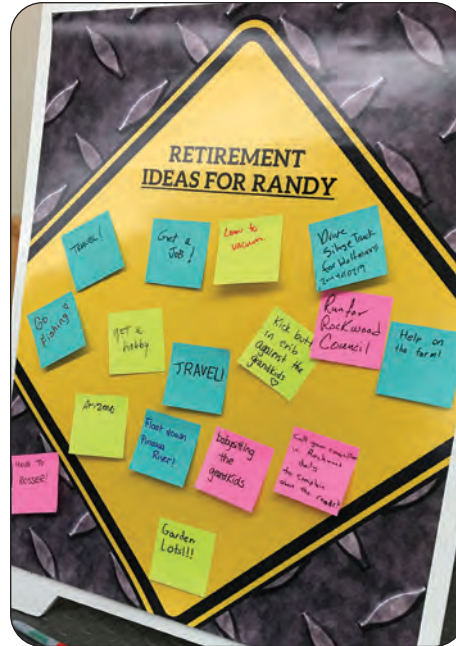 RETIREMENT
IDEAS FOR RANDY
TRAVEL!
Get a
Job!
Learn to
vacuum.
Drive
Silage Truck
for
Go
Fishing
get a
hobby
TRAVEL!
Kick butt
in crib
against the
grandkids
Run for
Rockwood
Council
Help on
the farm!
Arizona
Float down
Pinawa
River!
babysitting
the
grandkids
Call your councillor
in Rockwood
daily
to complain
about the roads!
MOVE TO
ROSSER!
Garden
Lots!!!